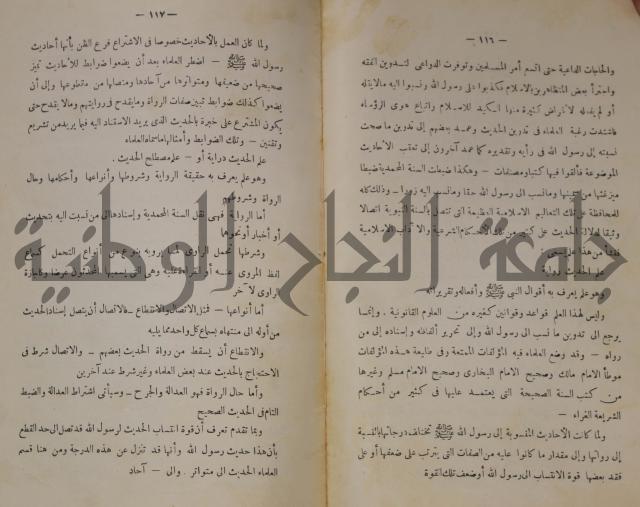 — ١١٦ —
والحاجات الداعية حتى اتسع أمر المسلمين وتوفرت الدواعى لتدوين الفقه
واجترأ بعض المتظاهرين بالاسلام فكذبوا على رسول الله ونسبوا اليه مالم يقله
أو لم يفعله لأغراض كثيرة منها الكيد للاسلام واتباع هوى الرؤساء
فاشتدت رغبة العلماء فى تدوين الحديث وعمد بعضهم إلى تدوين ما صحت
نسبته إلى رسول الله فى رأيه وتقديره كما عمد آخرون إلى تعقب الأحاديث
الموضوعة فألفوا فيها كتبا ومصنفات - وهكذا ضبطت السنة المحمدية ضبطا
ميز غثها من سمينها ومانسب الى رسول الله حقا ومانسب اليه زورا - وذلك كله
للمحافظة على تلك التعاليم الاسلامية العظيمة التى تتصل بالسنة النبوية اتصالا
وثيقا لدلالة الحديث على كثير من تلك الأحكام الشرعية والآداب الاسلامية
علم الحديث رواية
وهو علم يعرف به أقوال النبي ﷺ وأفعاله وتقريراته
وليس لهذا العلم قواعد وقوانين كغيره من العلوم القانونية . وإنما
يرجع الى تدوين ما نسب الى رسول الله وإلى تحرير ألفاظه وإسناده إلى من
رواه — وقد وضع العلماء فيه المؤلفات الممتعة وفى طليعة هذه المؤلفات
موطأ الامام مالك وصحيح الامام البخارى وصحيح الامام مسلم وغيرها
من كتب السنة الصحيحة التى يعتمد عليها فى كثير من أحكام
الشريعة الغراء —
ولما كانت الأحاديث المنسوبة إلى رسول الله ﷺ تختلف درجاتها بالنسبة
إلى رواتها وإلى مقدار ما كانوا عليه من الصفات التى يترتب على ضعفها أو على
فقد بعضها قوة الانتساب الى رسول الله أو ضعف تلك القوة
— ١١٧ —
ولما كان العمل بالأحاديث خصوصا فى الاشتراع فرع الظن بأنها أحاديث
رسول الله ﷺ — اضطر العلماء بعد أن يضعوا ضوابط للأحاديث تميز
صحيحها من ضعيفها ومتواترها من آحادها ومتصلها من مقطوعها وإلى أن
يضعوا كذلك ضوابط تبين صفات الرواة ومايقدح فى روايتهم ومالا يقدح حتى
يكون المشترع على خبرة بالحديث الذى يريد الاستناد اليه فيما يريد من تشريع
وتقنين — وتلك الضوابط وأمثالها ماسماه العلماء
علم الحديث دراية أو — علم مصطلح الحديث .
وهو علم يعرف به حقيقة الرواية وشروطها وأنواعها وأحكامها وحال
الرواة وشروطهم
أما الرواية فهى نقل السنة المحمدية وإسنادها الى من نسبت اليه بتحديث
أو أخبار أو نحوها
وشرطها تحمل الراوى لما يرويه بنوع من أنواع التحمل كسماع
لفظ المروى عنه أو لقراءة عليه وهى التى يسميها المحدثون عرضا وكاجازة
الراوى لآخر
أما أنواعها — فمثل الاتصال والانقطاع — فالاتصال أن يتصل إسناد الحديث
من أوله الى منتهاه بسماع كل واحد مما يليه
والانقطاع أن يسقط من رواة الحديث بعضهم — والاتصال شرط فى
الاحتجاج بالحديث عند بعض العلماء وغير شرط عند آخرين
وأما حال الرواة فهو العدالة والجرح — وسيأتى اشتراط العدالة والضبط
التام فى الحديث الصحيح
وبما تقدم تعرف أن قوة انتساب الحديث لرسول الله قد تصل الى حد القطع
بأن هذا حديث رسول الله وأنها قد تنزل عن هذه الدرجة ومن هنا قسم
العلماء الحديث الى متواتر . والى — آحاد
جامعة النجاح الوطنية